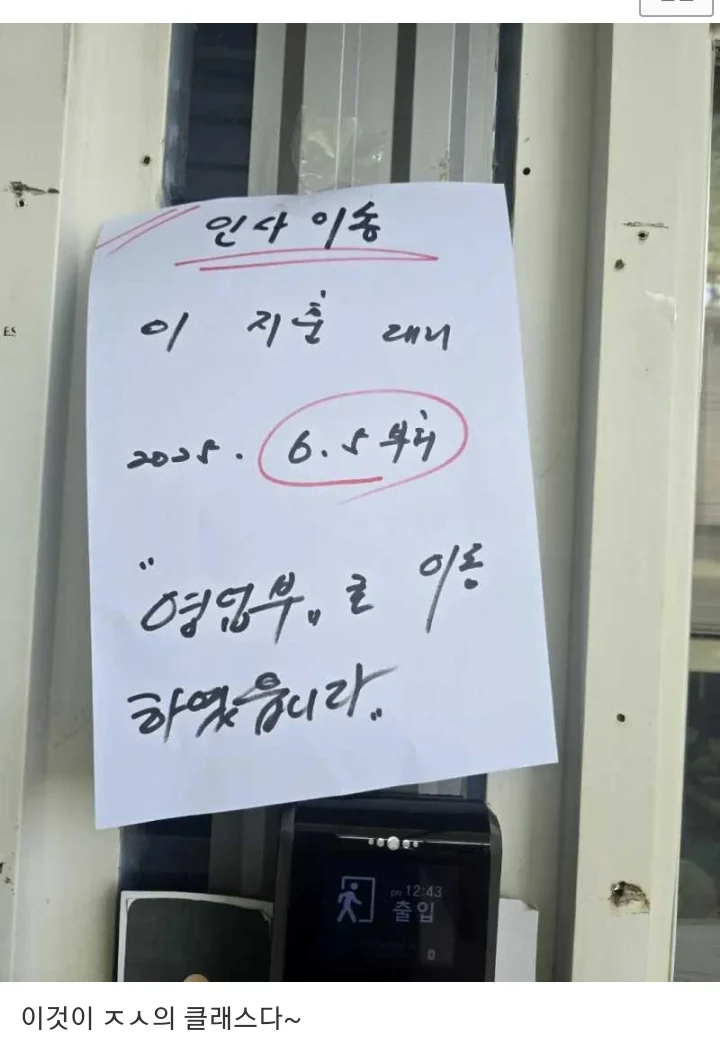 인사이송
이 지훈 대리
2025. 6.5부터
"영업부"로 이동
하였읍니다"
ES
pm 12:43
출입
이것이 ㅈㅅ의 클래스다~